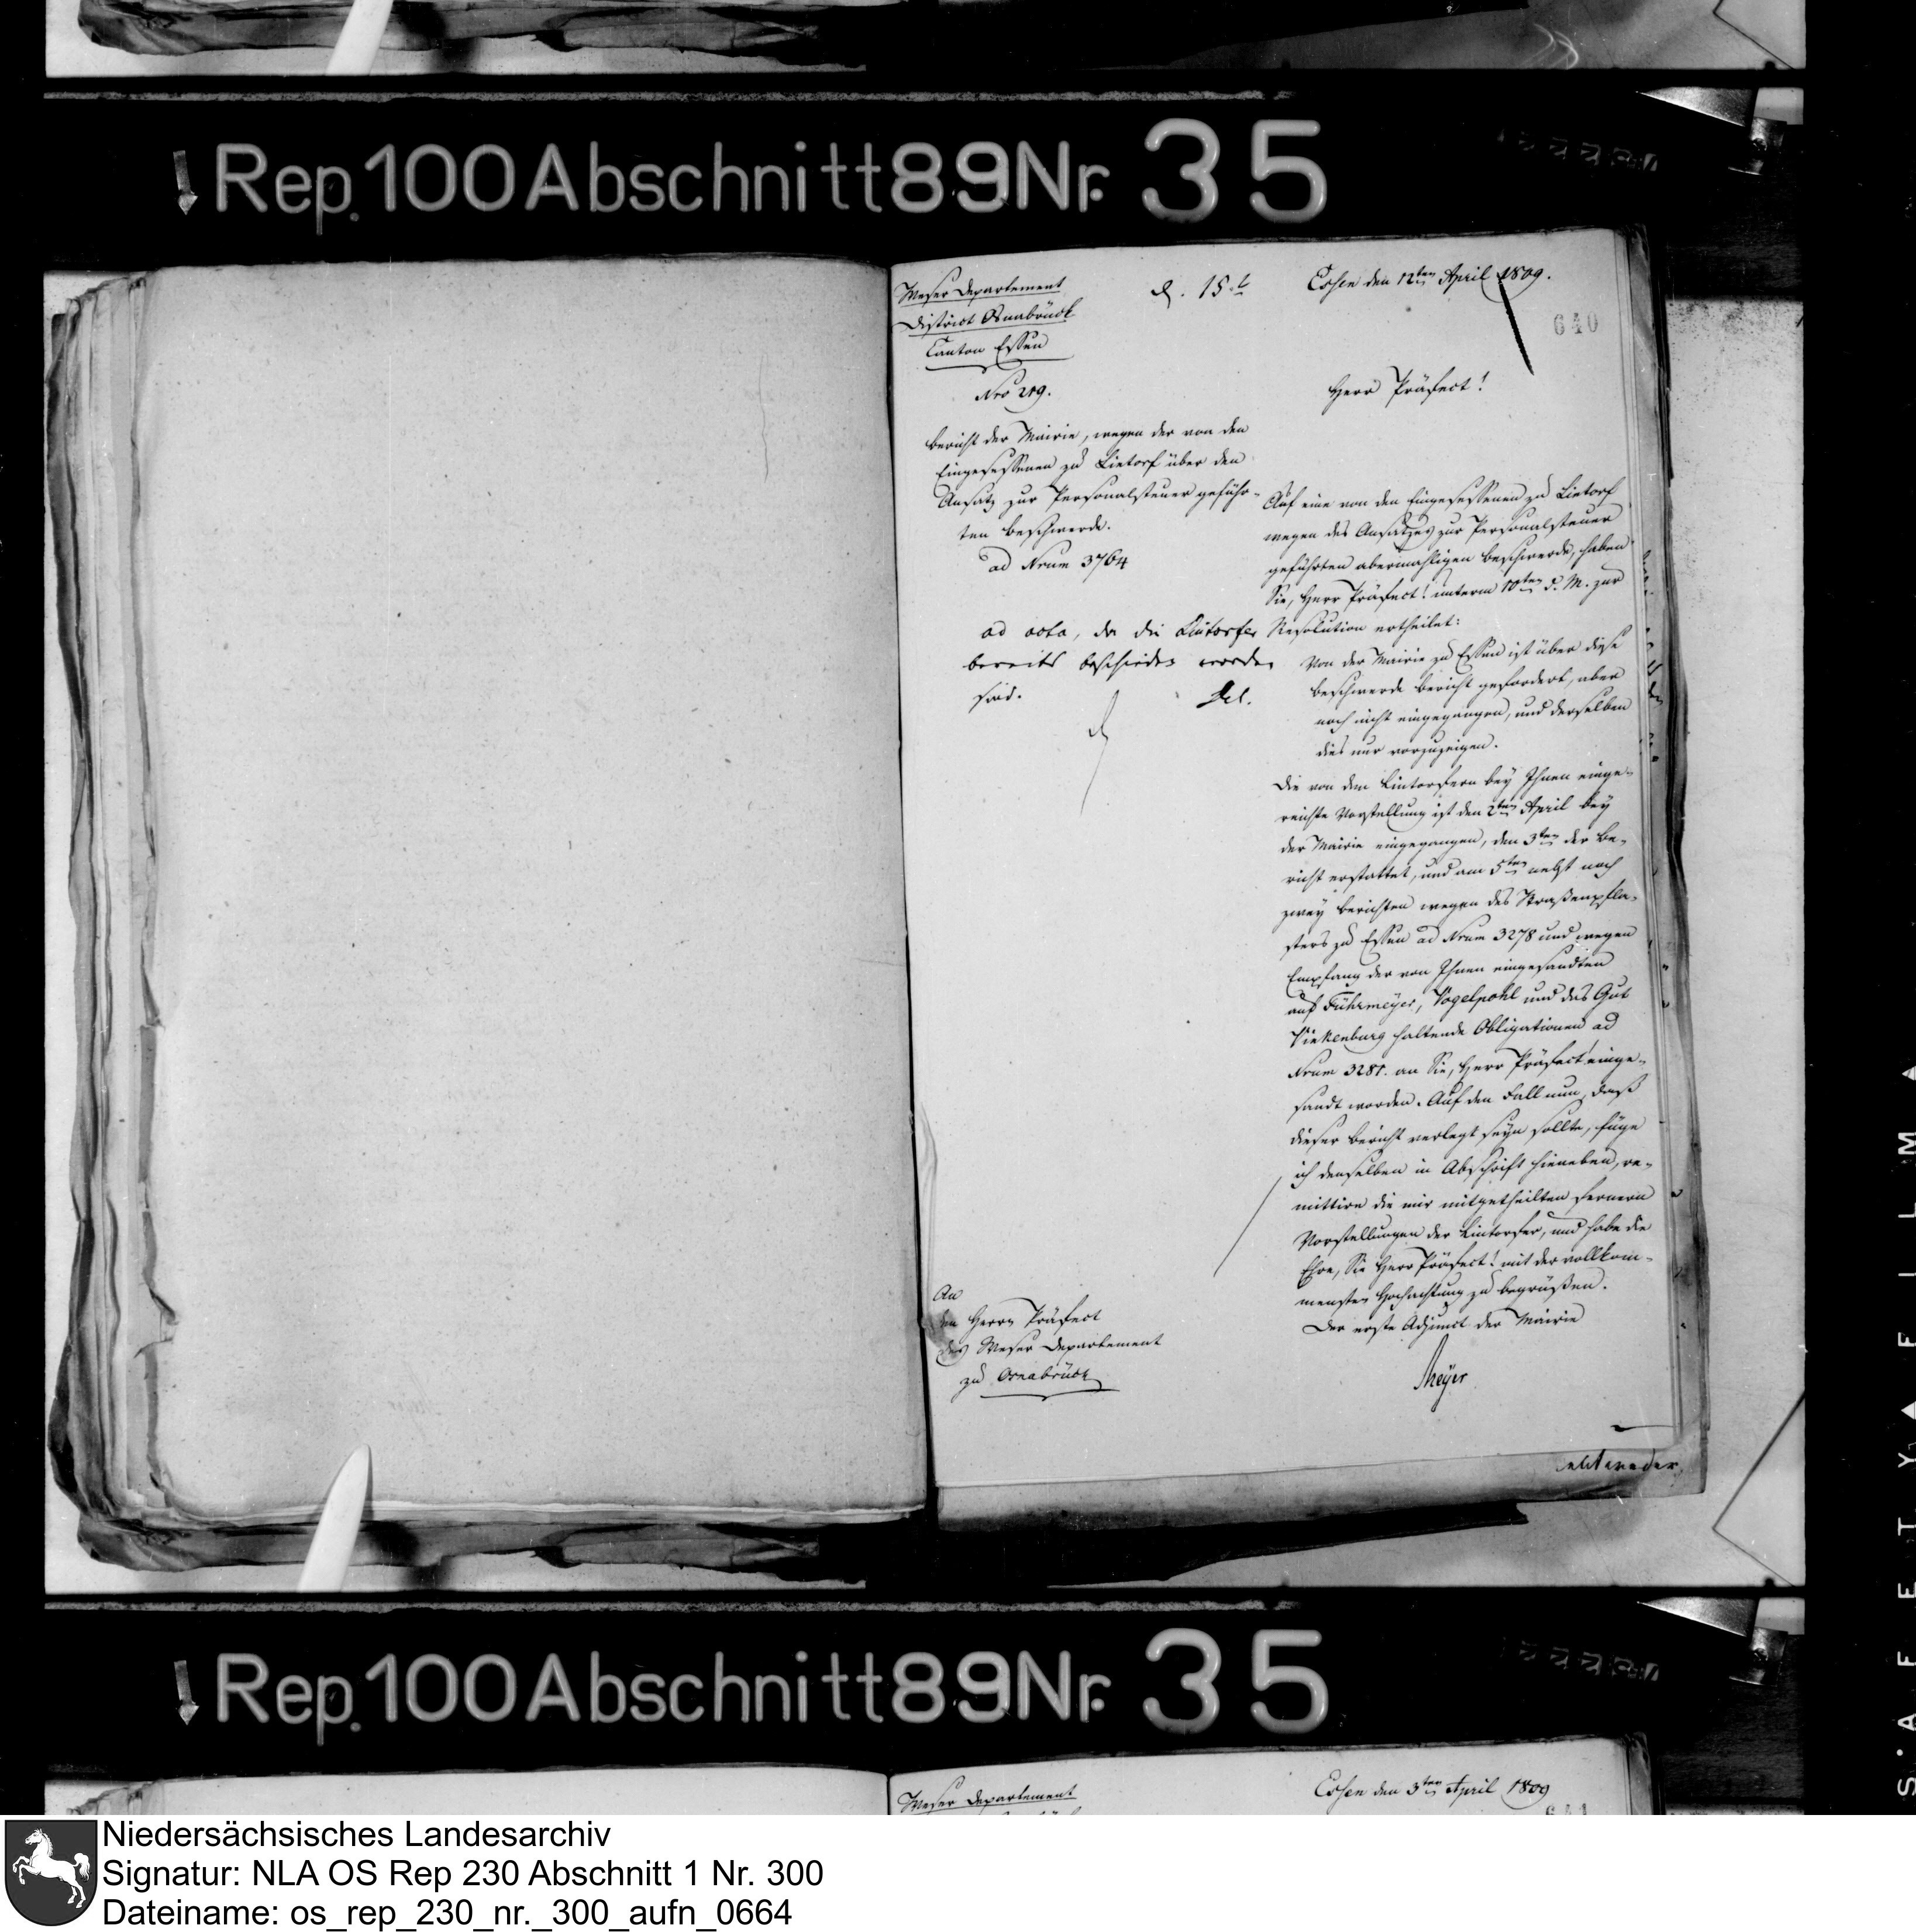 Rep. 100 Abschnitt 89 Nr. 35
Weser Departement
District Osnabrück
Canton Essen
Nro 219.
Bericht der Mairie, wegen der von den
Eingesessenen zu Lintorf über den
Ansatz zur Personalsteuer geführ-
ten Beschwerde.
ad Nrum 3764
ad acta, da die Lintorfer
bereits beschieden worden
sind.
An
den Herrn Präfect
des Weser Departement
zu Osnabrück
Essen den 12ten April 1809.
640
Herr Präfect!
Auf eine von den Eingesessenen zu Lintorf
wegen des Ansatzes zur Personalsteuer
geführten abermahligen Beschwerde, haben
Sie, Herr Präfect! unterm 10ten d. M. zur
Resolution ertheilet:
Von der Mairie zu Essen ist über diese
Beschwerde Bericht gefordert, aber
noch nicht eingegangen, und derselben
dies nur vorzuzeigen.
Die von den Lintorfern bey Ihnen einge-
reichte Vorstellung ist den 2ten April bey
der Mairie eingegangen, den 3ten der Be-
richt erstattet, und am 5ten nebst noch
zwey Berichten wegen des Straßenpfla-
sters zu Essen ad Nrum 3278 und wegen
Empfang der von Ihnen eingesandten
auf Führmeyer, Vogelpohl und das Gut
Vinkenburg haltende Obligationen ad
Nrum 3281. an Sie, Herr Präfect! einge-
sandt worden. Auf den Fall nun, daß
dieser Bericht verlegt seyn sollte, füge
ich denselben in Abschrift hieneben, re-
mittire die mir mitgetheilten fernern
Vorstellungen der Lintorfer, und habe die
Ehre, Sie Herr Präfect! mit der vollkom-
mensten Hochachtung zu begrüßen.
Der erste Adjunct der Mairie
Meyer
Rep. 100 Abschnitt 89 Nr. 35
Weser Departement
Essen den 3ten April 1809
Niedersächsisches Landesarchiv
Signatur: NLA OS Rep 230 Abschnitt 1 Nr. 300
Dateiname: os_rep_230_nr._300_aufn_0664